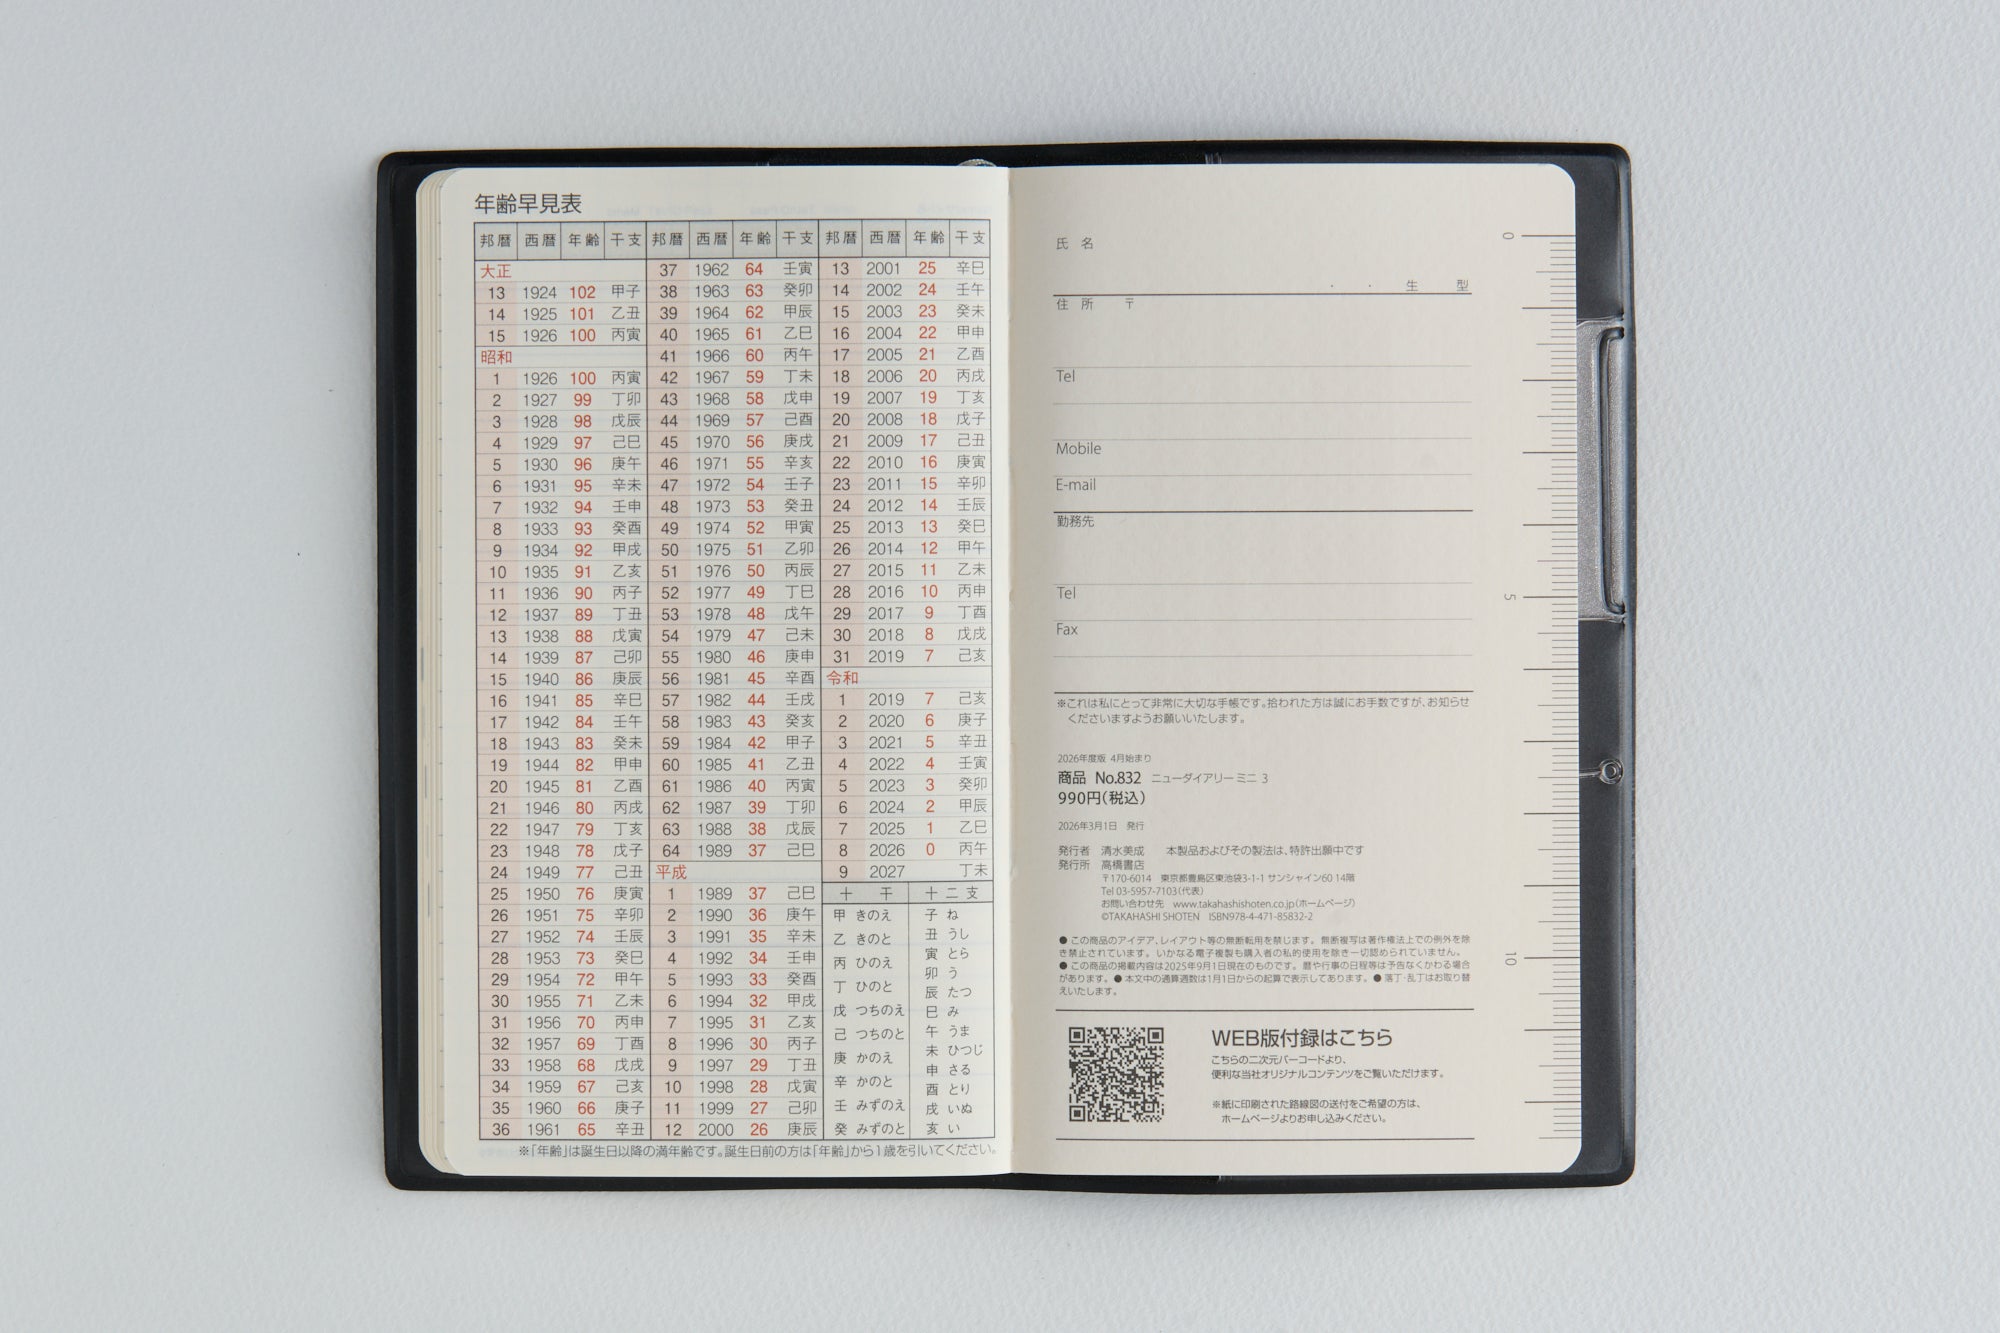 年齢早見表
邦暦 西暦 年齢 干支 邦暦 西暦 年齢 干支 邦暦 西暦 年齢 干支
大正 37 1962 64 壬寅 13 2001 25 辛巳
13 1924 102 甲子 38 1963 63 癸卯 14 2002 24 壬午
14 1925 101 乙丑 39 1964 62 甲辰 15 2003 23 癸未
15 1926 100 丙寅 40 1965 61 乙巳 16 2004 22 甲申
昭和 41 1966 60 丙午 17 2005 21 乙酉
1 1926 100 丙寅 42 1967 59 丁未 18 2006 20 丙戌
2 1927 99 丁卯 43 1968 58 戊申 19 2007 19 丁亥
3 1928 98 戊辰 44 1969 57 己酉 20 2008 18 戊子
4 1929 97 己巳 45 1970 56 庚戌 21 2009 17 己丑
5 1930 96 庚午 46 1971 55 辛亥 22 2010 16 庚寅
6 1931 95 辛未 47 1972 54 壬子 23 2011 15 辛卯
7 1932 94 壬申 48 1973 53 癸丑 24 2012 14 壬辰
8 1933 93 癸酉 49 1974 52 甲寅 25 2013 13 癸巳
9 1934 92 甲戌 50 1975 51 乙卯 26 2014 12 甲午
10 1935 91 乙亥 51 1976 50 丙辰 27 2015 11 乙未
11 1936 90 丙子 52 1977 49 丁巳 28 2016 10 丙申
12 1937 89 丁丑 53 1978 48 戊午 29 2017 9 丁酉
13 1938 88 戊寅 54 1979 47 己未 30 2018 8 戊戌
14 1939 87 己卯 55 1980 46 庚申 31 2019 7 己亥
15 1940 86 庚辰 56 1981 45 辛酉 令和
16 1941 85 辛巳 57 1982 44 壬戌 1 2019 7 己亥
17 1942 84 壬午 58 1983 43 癸亥 2 2020 6 庚子
18 1943 83 癸未 59 1984 42 甲子 3 2021 5 辛丑
19 1944 82 甲申 60 1985 41 乙丑 4 2022 4 壬寅
20 1945 81 乙酉 61 1986 40 丙寅 5 2023 3 癸卯
21 1946 80 丙戌 62 1987 39 丁卯 6 2024 2 甲辰
22 1947 79 丁亥 63 1988 38 戊辰 7 2025 1 乙巳
23 1948 78 戊子 64 1989 37 己巳 8 2026 0 丙午
24 1949 77 己丑 平成 9 2027 丁未
25 1950 76 庚寅 1 1989 37 己巳 十干 十二支
26 1951 75 辛卯 2 1990 36 庚午
27 1952 74 壬辰 3 1991 35 辛未
28 1953 73 癸巳 4 1992 34 壬申
29 1954 72 甲午 5 1993 33 癸酉
30 1955 71 乙未 6 1994 32 甲戌
31 1956 70 丙申 7 1995 31 乙亥
32 1957 69 丁酉 8 1996 30 丙子
33 1958 68 戊戌 9 1997 29 丁丑
34 1959 67 己亥 10 1998 28 戊寅
35 1960 66 庚子 11 1999 27 己卯
36 1961 65 辛丑 12 2000 26 庚辰
甲 きのえ
乙 きのと
丙 ひのえ
丁 ひのと
戊 つちのえ
己 つちのと
庚 かのえ
辛 かのと
壬 みずのえ
癸 みずのと
子 ね
丑 うし
寅 とら
卯 う
辰 たつ
巳 み
午 うま
未 ひつじ
申 さる
酉 とり
戌 いぬ
亥 い
※「年齢」は誕生日以降の満年齢です。誕生日前の方は「年齢」から1歳を引いてください。
氏 名
・ ・ 生 型
住 所 〒
Tel
Mobile
E-mail
勤務先
Tel
Fax
※これは私にとって非常に大切な手帳です。拾われた方は誠にお手数ですが、お知らせ
くださいますようお願いいたします。
2026年度版 4月始まり
商品 No.832 ニューダイアリー ミニ 3
990円(税込)
2026年3月1日 発行
発行者 清水美成 本製品およびその製法は、特許出願中です
発行所 高橋書店
〒170-6014 東京都豊島区東池袋3-1-1 サンシャイン60 14階
Tel 03-5957-7103(代表)
お問い合わせ先 www.takahashishoten.co.jp(ホームページ)
©TAKAHASHI SHOTEN ISBN978-4-471-85832-2
● この商品のアイデア、レイアウト等の無断転用を禁じます。無断複写は著作権法上での例外を除
き禁止されています。いかなる電子複製も購入者の私的使用を除き一切認められていません。
● この商品の掲載内容は2025年9月1日現在のものです。暦や行事の日程等は予告なくかわる場合
があります。● 本文中の通算週数は1月1日からの起算で表示してあります。● 落丁・乱丁はお取り替
えいたします。
WEB版付録はこちら
こちらの二次元バーコードより、
便利な当社オリジナルコンテンツをご覧いただけます。
※紙に印刷された路線図の送付をご希望の方は、
ホームページよりお申し込みください。
0
5
10